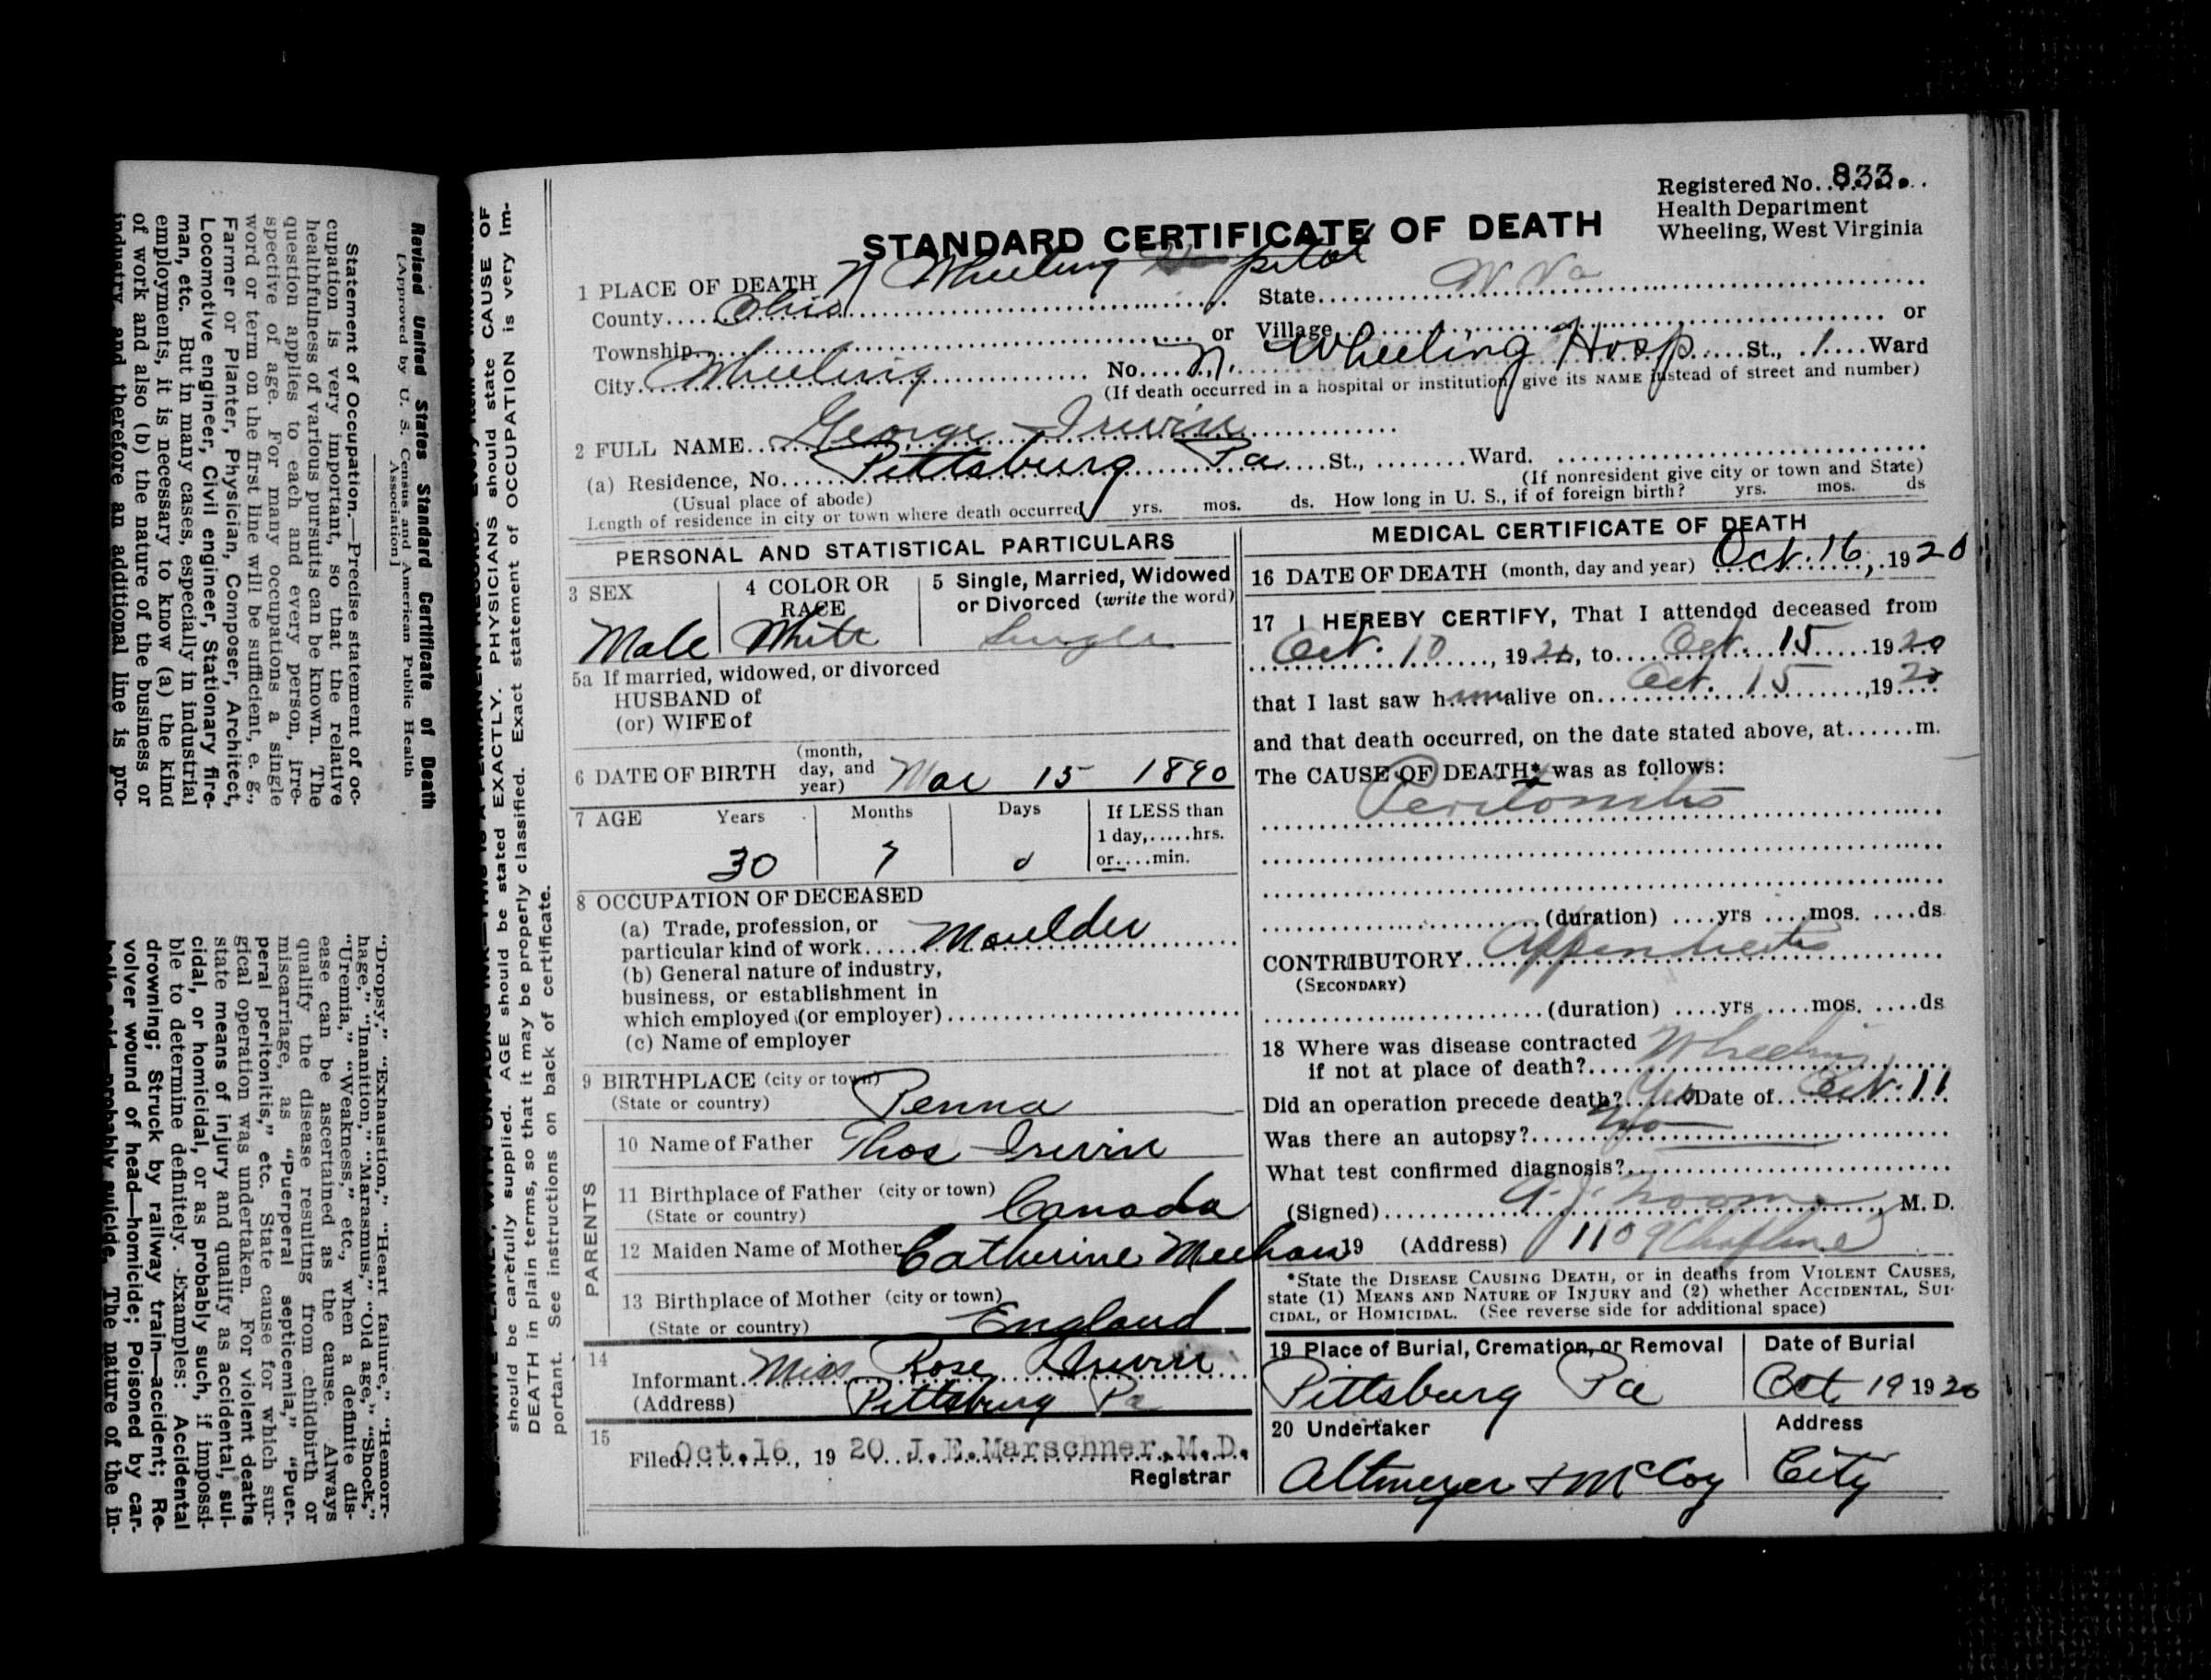 Revised United States Standard Certificate of Death
[Approved by U. S. Census and American Public Health
Association]
Statement of Occupation.—Precise statement of oc-
cupation is very important, so that the relative
healthfulness of various pursuits can be known. The
question applies to each and every person, irre-
spective of age. For many occupations a single
word or term on the first line will be sufficient, e. g.,
Farmer or Planter, Physician, Composer, Architect,
Locomotive engineer, Civil engineer, Stationary fire-
man, etc. But in many cases, especially in industrial
employments, it is necessary to know (a) the kind
of work and also (b) the nature of the business or
industry, and therefore an additional line is pro-
"Dropsy," "Exhaustion," "Heart failure," "Hemorr-
hage," "Inanition," "Marasmus," "Old age," "Shock,"
"Uremia," "Weakness," etc., when a definite dis-
ease can be ascertained as the cause. Always
qualify the disease resulting from childbirth or
miscarriage, as "Puerperal septicemia," "Puer-
peral peritonitis," etc. State cause for which sur-
gical operation was undertaken. For violent deaths
state means of injury and qualify as accidental, sui-
cidal, or homicidal, or as probably such, if impossi-
ble to determine definitely. Examples: Accidental
drowning; Struck by railway train—accident; Re-
volver wound of head—homicide; Poisoned by car-
bolic acid—probably suicide. The nature of the in-
should be carefully supplied. AGE should be stated EXACTLY. PHYSICIANS should state CAUSE OF
DEATH in plain terms, so that it may be properly classified. Exact statement of OCCUPATION is very im-
portant. See instructions on back of certificate.
Registered No. 833.
Health Department
Wheeling, West Virginia
STANDARD CERTIFICATE OF DEATH
1 PLACE OF DEATH N Wheeling Hospital
County Ohio State W Va
Township or Village or
City Wheeling No. N. Wheeling Hosp St., 1 Ward
(If death occurred in a hospital or institution, give its NAME instead of street and number)
2 FULL NAME George Irwin
(a) Residence, No. Pittsburg Pa St., Ward.
(Usual place of abode) (If nonresident give city or town and State)
Length of residence in city or town where death occurred yrs. mos. ds. How long in U. S., if of foreign birth? yrs. mos. ds
PERSONAL AND STATISTICAL PARTICULARS
3 SEX
Male
4 COLOR OR RACE
White
5 Single, Married, Widowed
or Divorced (write the word)
Single
5a If married, widowed, or divorced
HUSBAND of
(or) WIFE of
6 DATE OF BIRTH (month, day, and year) Mar 15 1890
7 AGE Years Months Days If LESS than
1 day, hrs.
30 7 0 or min.
8 OCCUPATION OF DECEASED
(a) Trade, profession, or
particular kind of work Moulder
(b) General nature of industry,
business, or establishment in
which employed (or employer)
(c) Name of employer
9 BIRTHPLACE (city or town)
(State or country) Penna
PARENTS
10 Name of Father Thos Irwin
11 Birthplace of Father (city or town)
(State or country) Canada
12 Maiden Name of Mother Catherine Meehan
13 Birthplace of Mother (city or town)
(State or country) England
14
Informant Miss Rose Irwin
(Address) Pittsburg Pa
15
Filed Oct.16, 1920 J.E.Marschner,M.D.
Registrar
MEDICAL CERTIFICATE OF DEATH
16 DATE OF DEATH (month, day and year) Oct. 16, 1920
17 I HEREBY CERTIFY, That I attended deceased from
Oct. 10, 1920, to Oct. 15 1920
that I last saw him alive on Oct. 15, 1920
and that death occurred, on the date stated above, at m.
The CAUSE OF DEATH* was as follows:
Peritonitis
(duration) yrs mos. ds
CONTRIBUTORY Appendicitis
(SECONDARY)
(duration) yrs mos. ds
18 Where was disease contracted
if not at place of death? Wheeling
Did an operation precede death? Yes Date of Oct. 11
Was there an autopsy? No
What test confirmed diagnosis?
(Signed) M. D.
19 (Address) 1109 Chapline
*State the DISEASE CAUSING DEATH, or in deaths from VIOLENT CAUSES,
state (1) MEANS AND NATURE OF INJURY and (2) whether ACCIDENTAL, SUI-
CIDAL, or HOMICIDAL. (See reverse side for additional space)
19 Place of Burial, Cremation, or Removal
Pittsburg Pa
Date of Burial
Oct 19 1920
20 Undertaker
Altmeyer & McCoy
Address
City